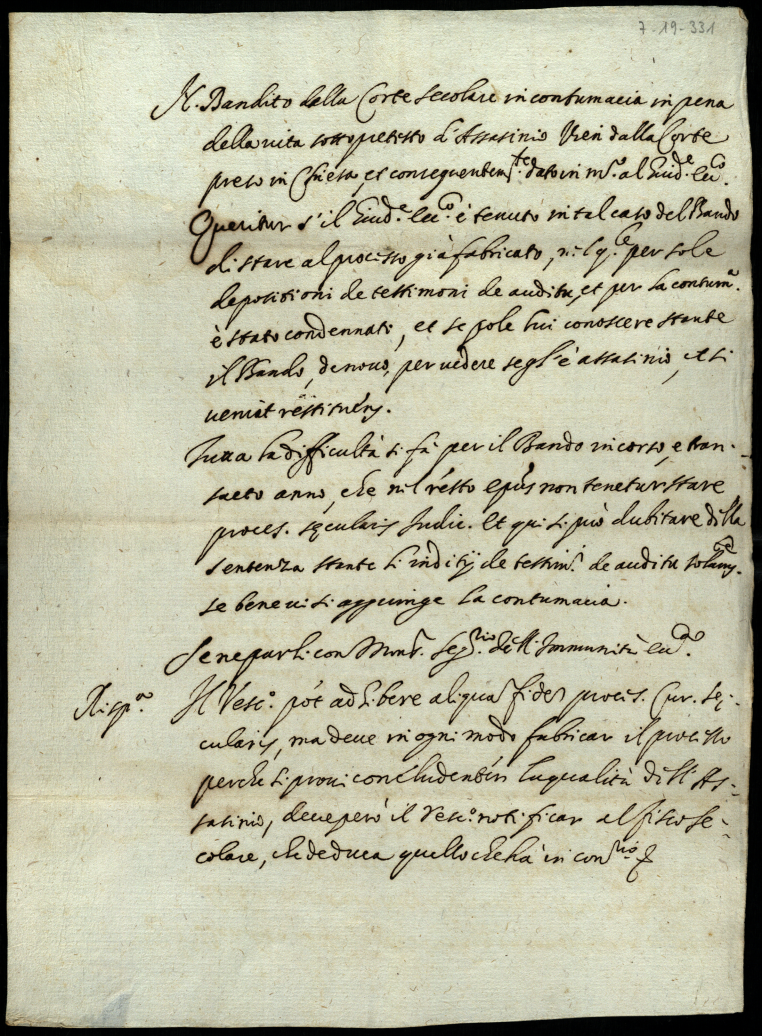 7-19-331
N. Bandito dalla Corte secolare in contumacia in pena
della vita sotto pretesto d'Assasinio vien dalla Corte
preso in Chiesa, et conseguentem.te dato in m.o al Giud.e ecc.o
Queritur s'il Giud.e ecc.o è tenuto in tal caso del Bando
di stare al processo già fabricato, nel q.le per sole
depositioni de testimoni de auditu, et per la contum.a
è stato condennato, et se pole lui conoscere stante
il Bando, de novo, per vedere se gl'è assasinio, et si
veniat restituend.
Tutta la difficultà si fà per il Bando incorso, e tran-
sacto anno, che nel resto Ep̃us non tenetur stare
process. secularis Judic. Et qui si può dubitare della
sentenza stante l'inditij de testim. de auditu solam.te
se bene vi si aggiunge la contumacia.
Se ne parli con Mons.r Seg.rio dell'Immunità ecc.a
Risp.a Il Vesc.o pot adhibere aliqua fides process. Cur. se-
cularis, ma deve in ogni modo fabricar il processo
perche si provi concludentem la qualità dell'As-
sasinio, deve però il Vesc.o notificar al fisco se-
colare, che deduca quello che hà in con.rio